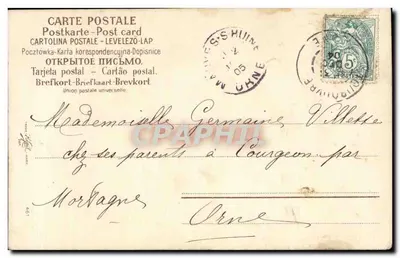 CARTE POSTALE
Postkarte - Post card
CARTOLINA POSTALE - LEVELEZŐ-LAP
Pocztówka - Karta korespondencyjna - Dopisnice
ОТКРЫТОЕ ПИСЬМО.
Tarjeta postal - Cartão postal.
Brefkort - Briefkaart - Brevkort.
Union postale universelle.
S-HUINE
05
ORNE
5
Mademoiselle Germaine Villette
chez ses parents à Courgeon par
Mortagne
Orne
CPARTHIPHIL